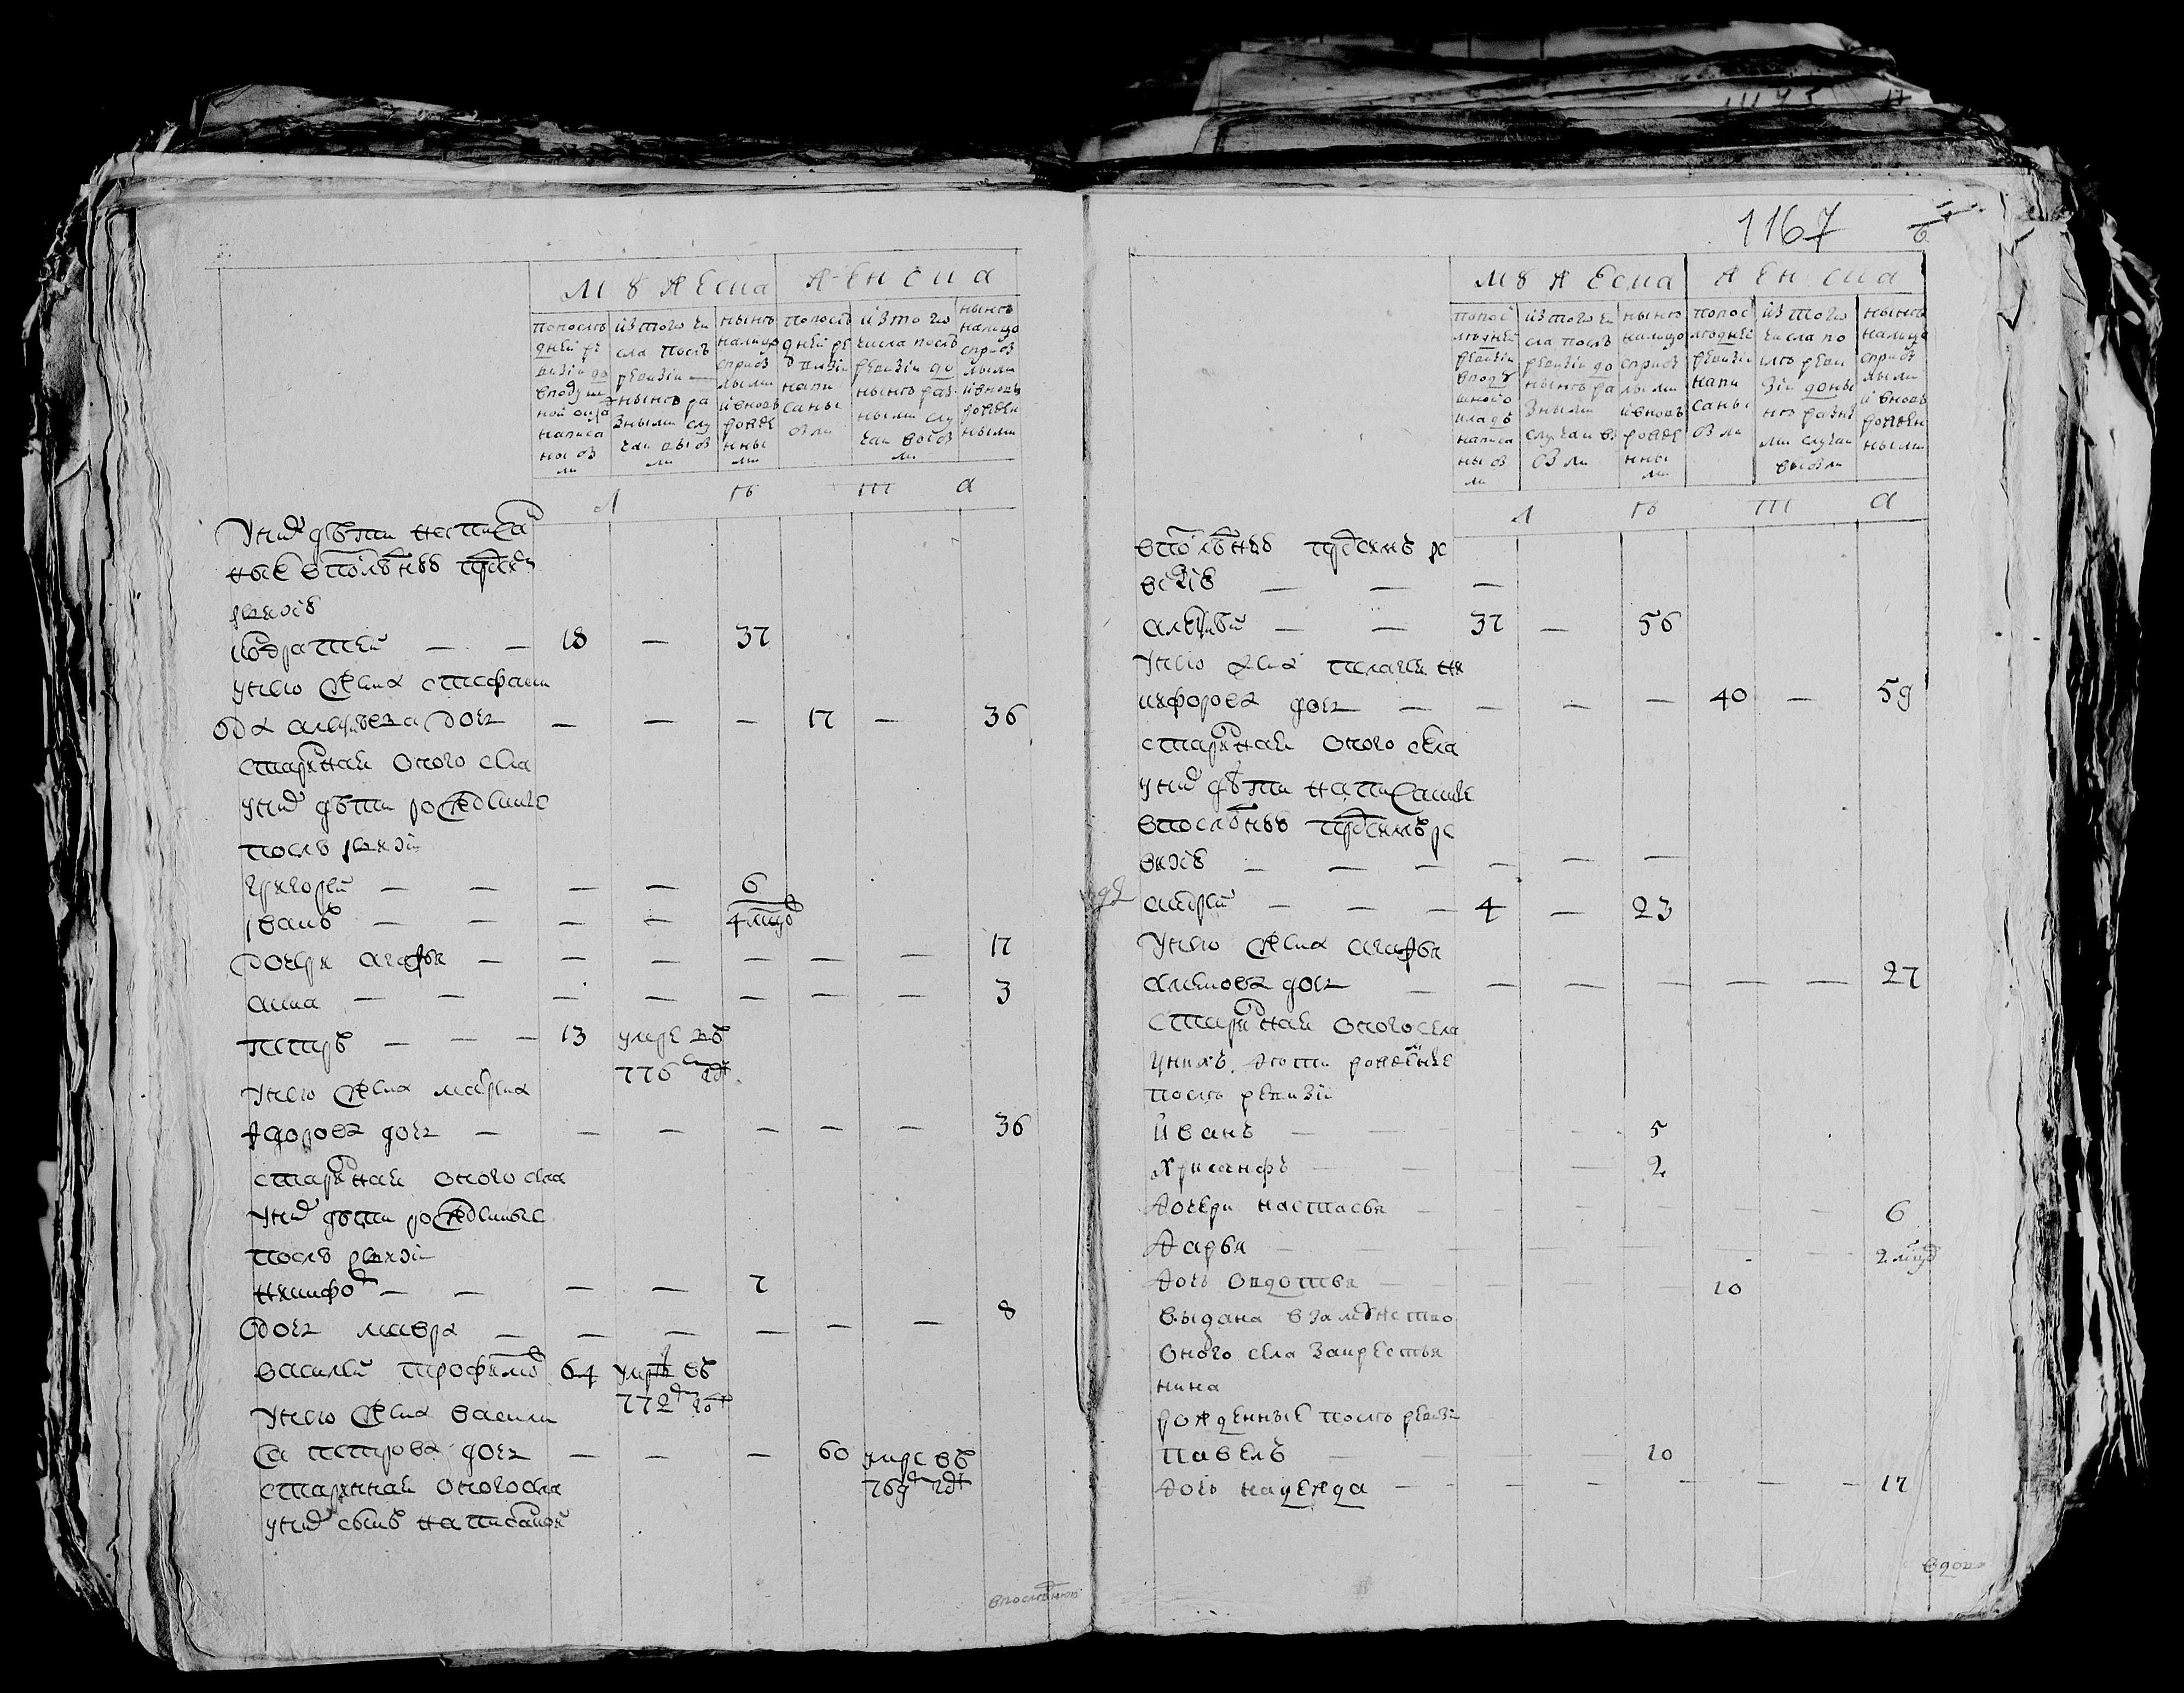 Мужеска женска
по последней ревизии до в подушной оклад написаны были
из того числа после ревизии до ныне разными случаи выбыли
ныне налицо с прибылыми и вновь рожденными
по последней ревизии написаны были
из того числа после ревизии до ныне разными случаи выбыли
ныне налицо с прибылыми и вновь рожденными
л ѣ т а
у них дѣти написан
ные в последнюю пред сим
ревизию
Кондратей — — 18 — 37
у него жена Стефани
да Алексѣева дочь — — — 17 — 36
старинная оного села
у них дѣти рожденные
послѣ ревизiи
Григорей — — — — 6
Иванъ — — — — 4 мцов
дочери Агафья — — — — — — 17
Анна — — — — — — — 3
Петръ — — — 13 умре въ
776м году
у него жена Марина
Федорова дочь — — — — — — 36
старинная оного села
у них дѣти рожденные
послѣ ревизiи
Никифор — — — — 7
дочь Мавра — — — — — — 8
Василей Трофимов 64 умре въ
772м году
у него жена Васили
са Петрова дочь — — — 60 умре въ
769м году
старинная оного села
у них сынъ написанной
в последнюю
1167
Мужеска женска
по последней ревизии в подушной окладъ написаны были
из того числа послѣ ревизiи до нынѣ разными случаи выбыли
нынѣ налицо с прибылыми и вновь рожденными
по последней ревизiи написаны были
из того числа по слѣ ревизiи до нынѣ разными случаи выбыли
нынѣ налицо с прибылыми и вновь рожденными
л ѣ т а
в последнюю пред симъ ре
визiю — — —
Алексѣй — — 37 — 56
у него жена Пелагея Ни
кифорова дочь — — — — 40 — 59
старинная оного села
у них дѣти написанные
в последнюю пред симъ ре
визiю — — — — — —
Андрей — — — 4 — 23
у него жена Агафья
дочь — — — — — — 27
старинная оного села
у нихъ дѣти рожденные
послѣ ревизiи
Иванъ — — — — 5
Хрисанфъ — — — 2
дочери Настасья — — — — — — 6
Дарья — — — — — — 2 мцов
дочь Овдотья — — — — 10
выдана в замужество
оного села за крестья
нина
рожденные послѣ ревизiи
Павелъ — — — — 10
дочь Надежда — — — — — — — 17
вдова